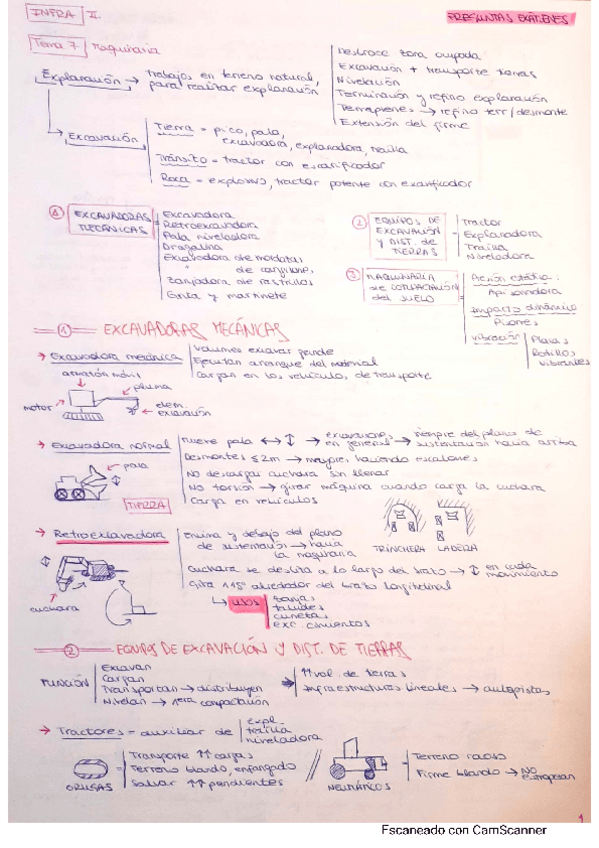 INFRA II.
PREGUNTAS EXÁMENES
Tema 7 Maquinaria
Explanación → trabajos en terreno natural,
para realizar explanación
Destroce zona ocupada
Excavación + transporte tierras
Nivelación
Terminación y refino explanación
Terraplenes → refino terr/desmonte
Extensión del firme
→ Excavación
Tierra = pico, pala,
excavadora, explanadora, traílla
Tránsito = tractor con escarificador
Roca = explosivos, tractor potente con escarificador
1 EXCAVADORAS MECÁNICAS =
Excavadora
Retroexcavadora
Pala niveladora
Dragalina
Excavadora de mordazas
de cangilones
Zanjadora de rastrillos
Grúa y martinete
2 EQUIPOS DE EXCAVACIÓN y DIST. de TIERRAS =
Tractor
Explanadora
Traílla
Niveladora
3 MAQUINARIA de COMPACTACIÓN del SUELO =
Acción estática:
Apisonadora
Impacto dinámico
Pisones
Vibración
Placas
Rodillos
vibrantes
1 EXCAVADORAS MECÁNICAS
→ Excavadora mecánica
Volúmenes excavar grande
Ejecutan arranque del material
Cargan en los vehículos de transporte
armazón móvil
pluma
motor
elem. excavación
→ Excavadora normal
Mueve pala ↔ ↕ → excavaciones en general → siempre del plano de sustentación hacia arriba
Desmontes ≤ 2m → mayores haciendo escalones
No descargar cuchara sin llenar
No torsión → girar máquina cuando carga la cuchara
Carga en vehículos
pala
TIERRA
→ Retroexcavadora
encima y debajo del plano
de sustentación → hacia
la maquinaria
TRINCHERA LADERA
Cuchara se desliza a lo largo del brazo → ↕ en cada movimiento
Gira alrededor del brazo longitudinal
cuchara
↳ USOS
zanjas
taludes
cunetas
exc. cimientos
2 EQUIPOS DE EXCAVACIÓN Y DIST. DE TIERRAS
FUNCIÓN
Excavan
Cargan
Transportan → distribuyen
Nivelan → 1era compactación
↑↑ vol. de tierras
Infraestructuras lineales → autopistas
→ Tractores = auxiliar de
expl.
traílla
niveladora
ORUGAS =
Transporte ↑↑ cargas
Terreno blando, enfangado
Salvar ↑↑ pendientes
NEUMÁTICOS =
Terreno
Firme blando → NO estropean
1
Escaneado con CamScanner